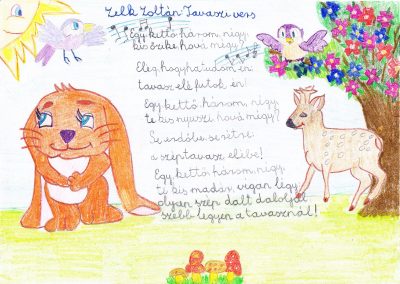 Zelk Zoltán Tavaszi vers
Egy, kettő, három, négy,
kis őzike hová mégy?
Elég, hogyha tudom én:
tavasz elé futok én!
Egy, kettő, három, négy,
te kis nyuszi hová mégy?
Se erdőbe, se rétre:
a szép tavasz elébe!
Egy, kettő, három, négy,
te kis madár, vígan légy,
olyan szép dalt dalolját
szebb legyen a tavasznál!